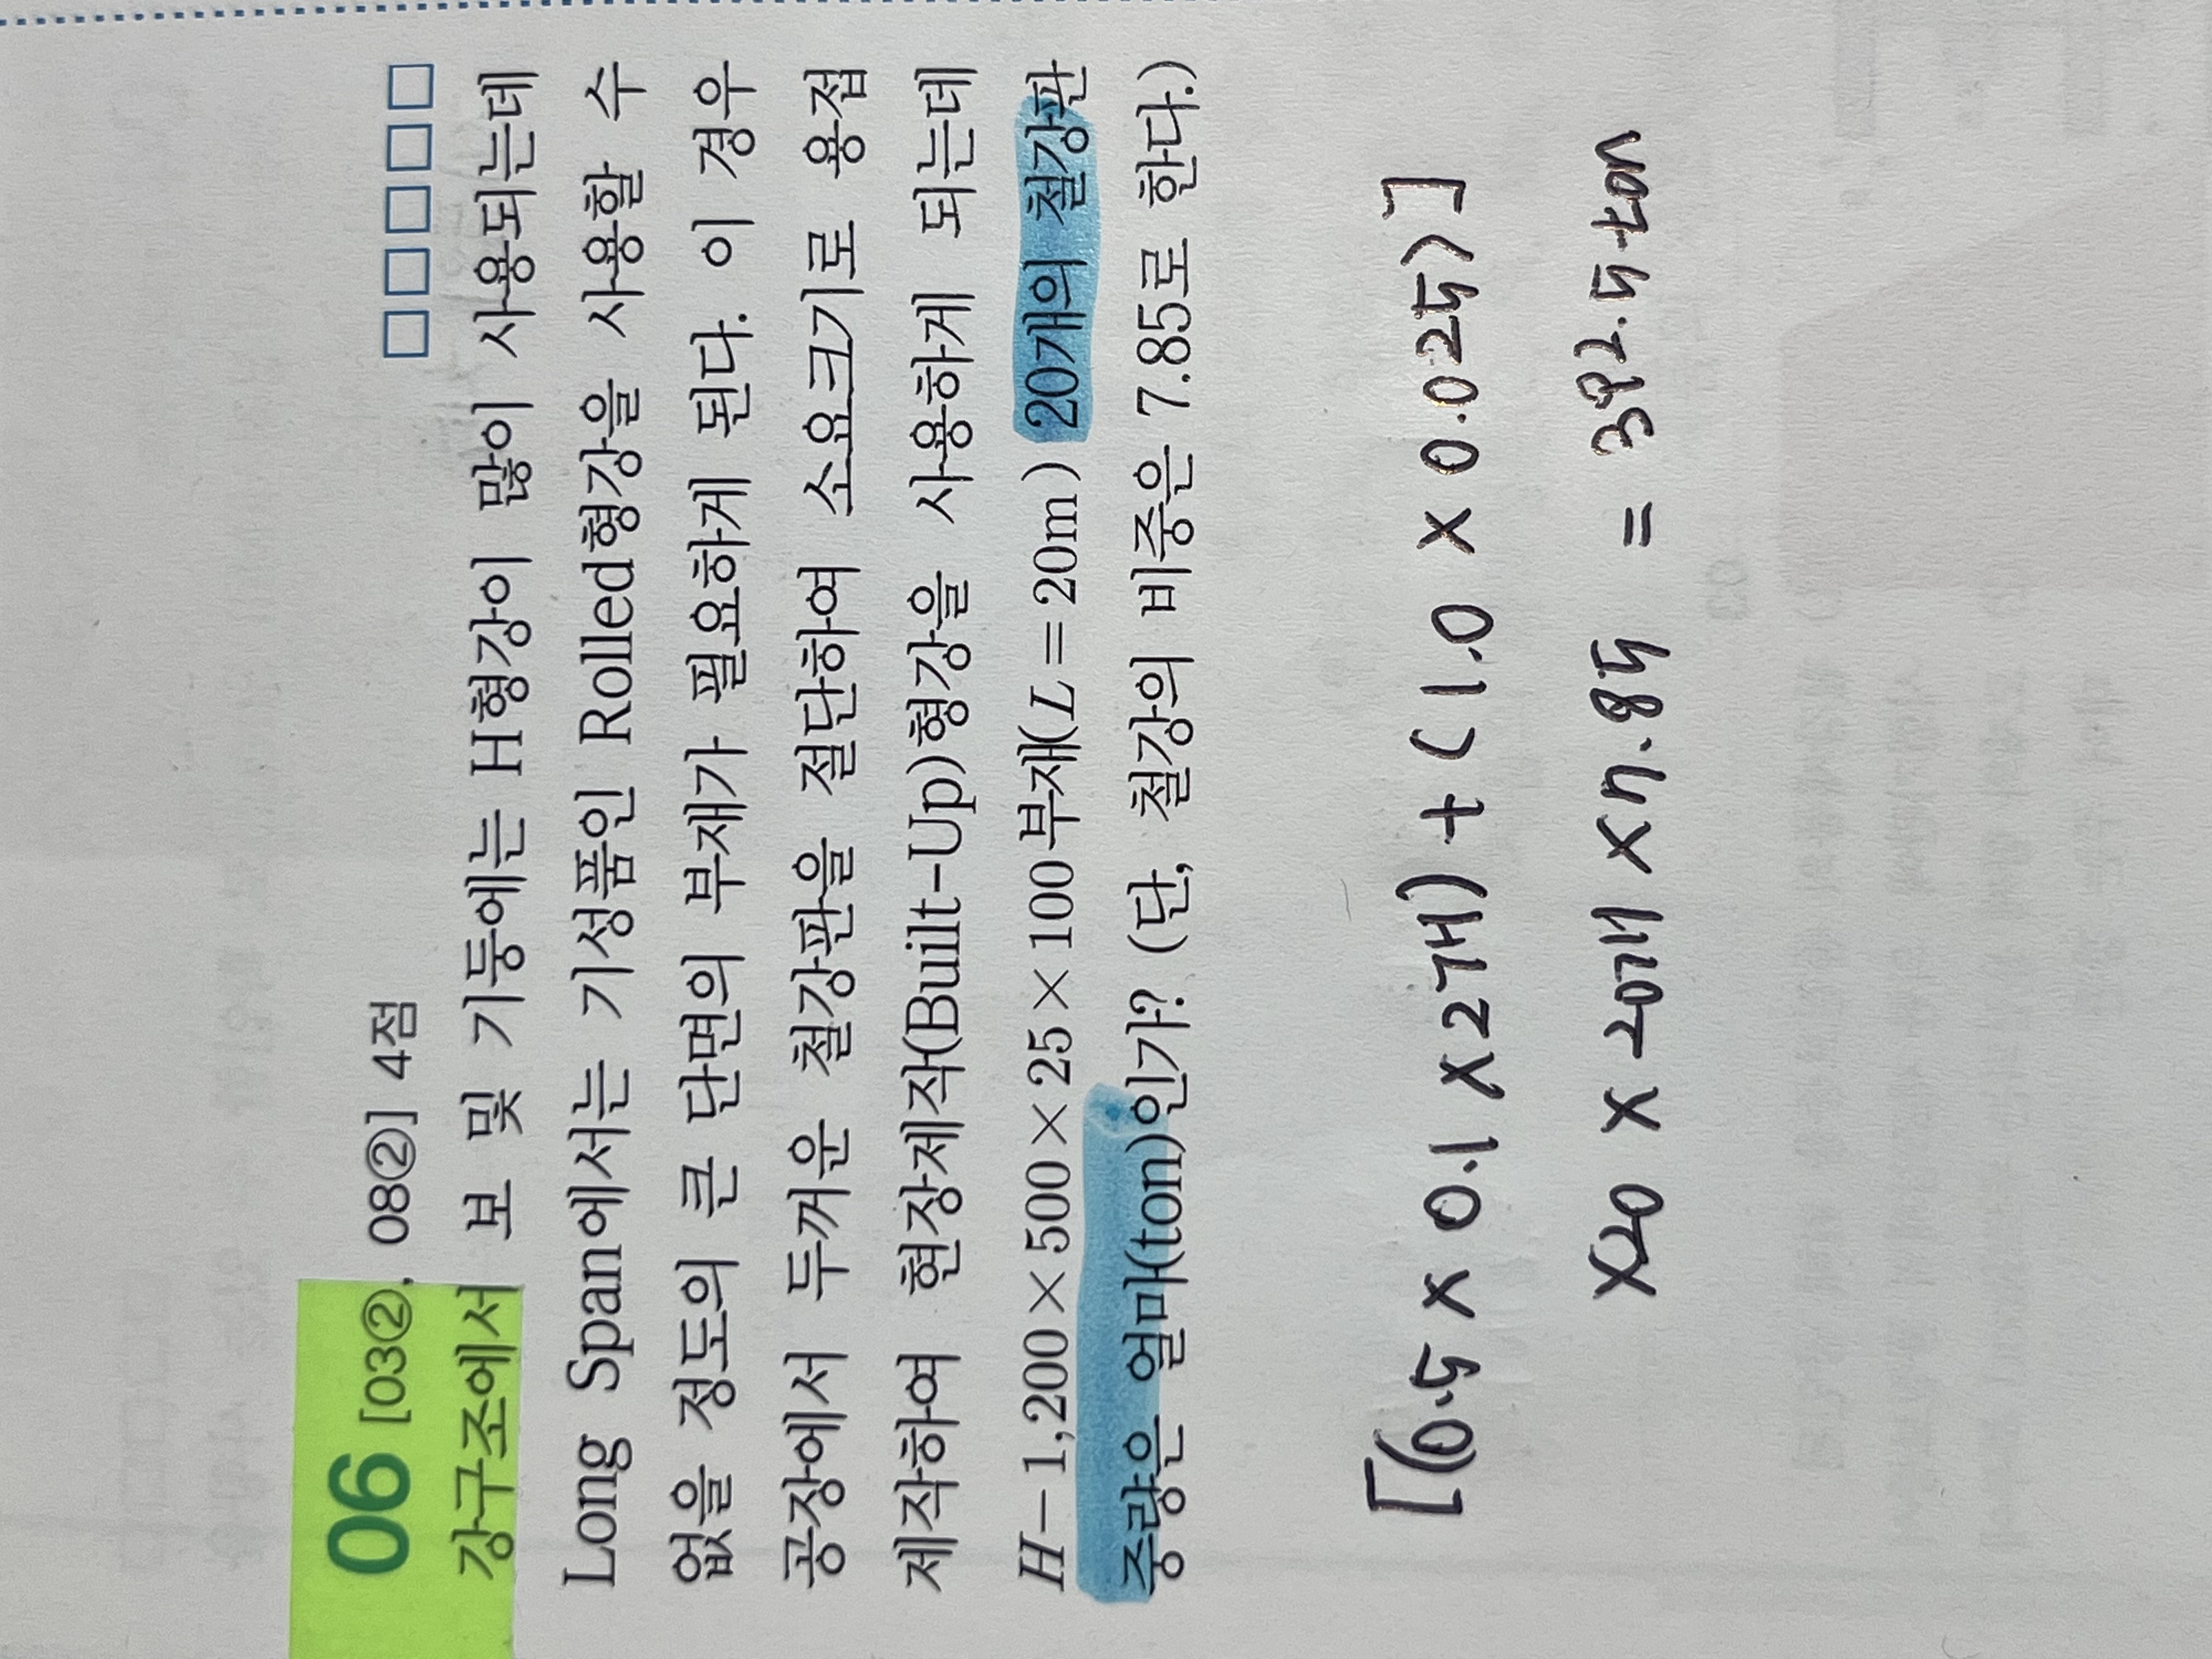 06 [03②, 08②] 4점 □□□□□
강구조에서 보 및 기둥에는 H형강이 많이 사용되는데
Long Span에서는 기성품인 Rolled형강을 사용할 수
없을 정도의 큰 단면의 부재가 필요하게 된다. 이 경우
공장에서 두꺼운 철강판을 절단하여 소요크기로 용접
제작하여 현장제작(Built-Up)형강을 사용하게 되는데
H-1,200×500×25×100부재(L=20m) 20개의 철강판
중량은 얼마(ton)인가? (단, 철강의 비중은 7.85로 한다.)
[(0.5 × 0.1 × 2개) + (1.0 × 0.025)]
×20 × 20개 × 7.85 = 392.5 ton